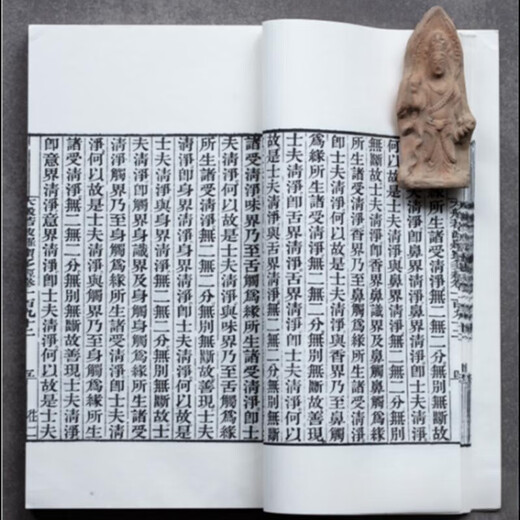 諸受清淨無二無二分無別無斷故
清淨卽鼻界清淨鼻界清淨卽士夫清淨
何以故是士夫清淨與鼻界清淨無二無二分無別
無斷故士夫清淨卽香界鼻識界及鼻觸鼻觸爲緣
所生諸受清淨香界乃至鼻觸爲緣所生諸受清淨
卽士夫清淨何以故是士夫清淨與香界乃至鼻觸
爲緣所生諸受清淨無二無二分無別無斷故善現
士夫清淨卽舌界清淨舌界清淨卽士夫清淨何以
故是士夫清淨與舌界清淨無二無二分無別無斷
諸受清淨味界乃至舌觸爲緣所生諸受清淨卽士
夫清淨何以故是士夫清淨與味界乃至舌觸爲緣
所生諸受清淨無二無二分無別無斷故善現士夫
清淨卽身界清淨身界清淨卽士夫清淨何以故是
士夫清淨與身界清淨無二無二分無別無斷故士
夫清淨卽觸界身識界及身觸身觸爲緣所生諸受
清淨觸界乃至身觸爲緣所生諸受清淨卽士夫清
淨何以故是士夫清淨與觸界乃至身觸爲緣所生
諸受清淨無二無二分無別無斷故善現士夫清淨
卽意界清淨意界清淨卽士夫清淨何以故是士夫